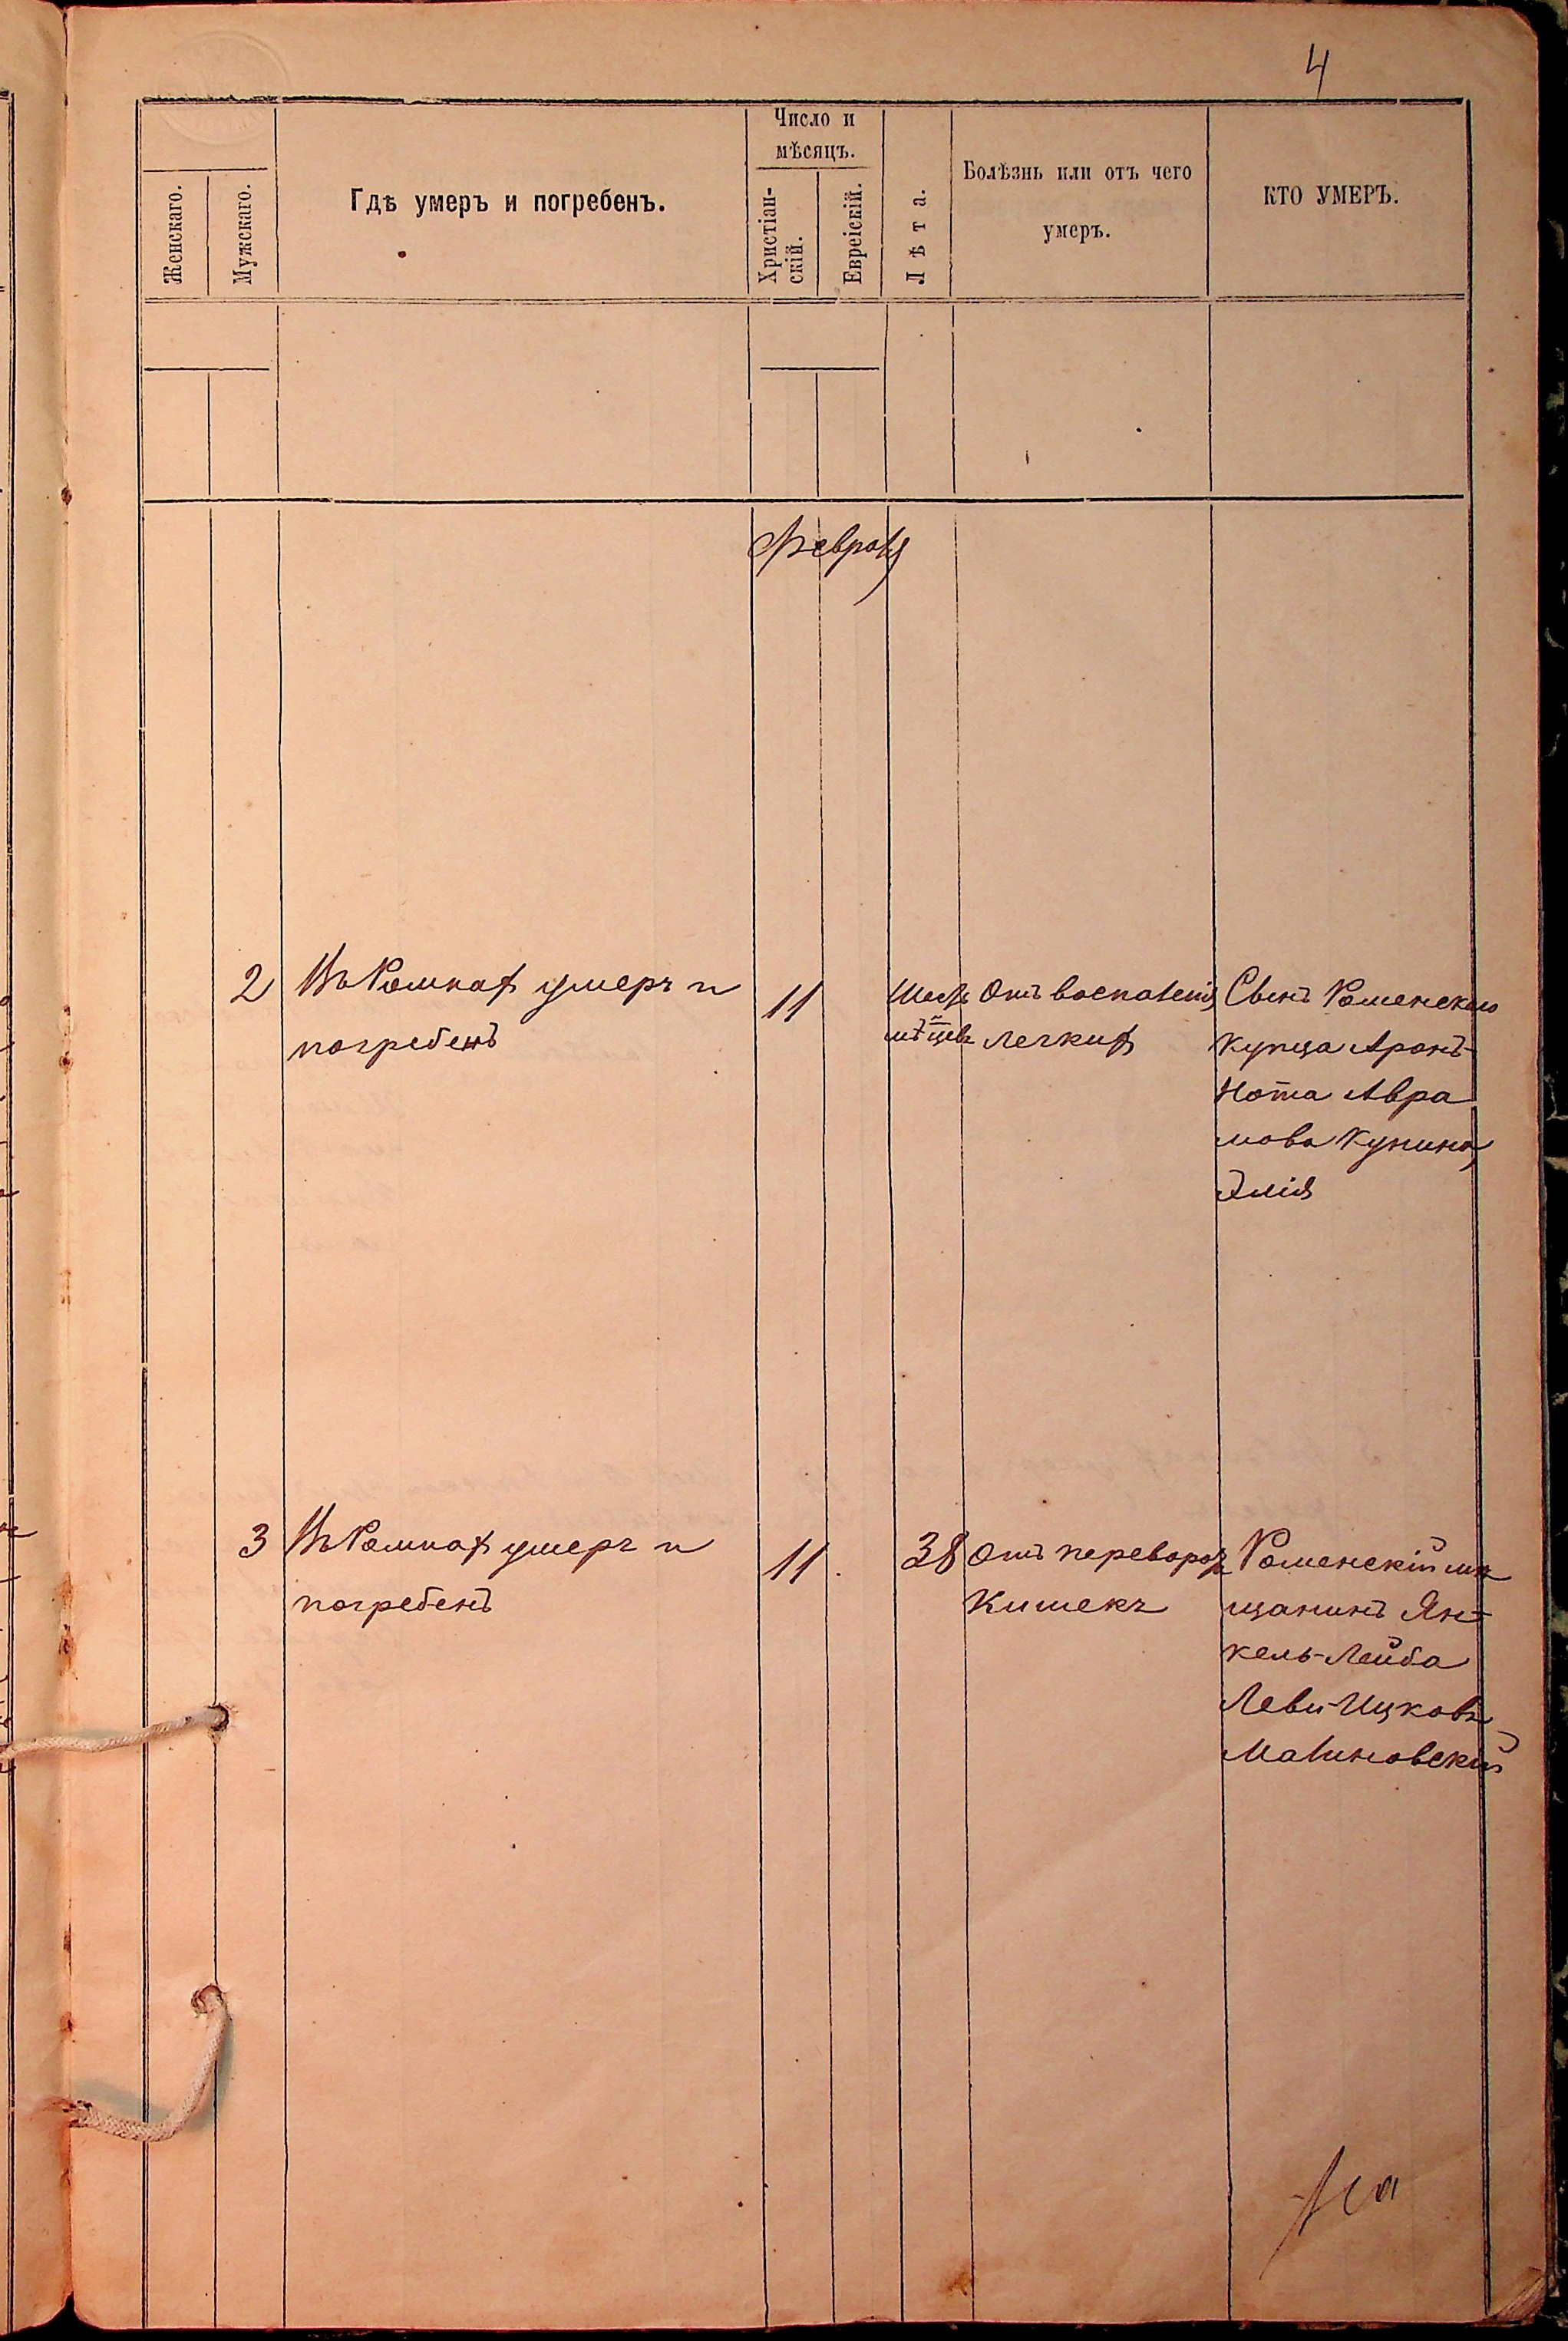 4
Число и
мѣсяцъ.
Женскаго.
Мужскаго.
Гдѣ умеръ и погребенъ.
Христіан-
скій.
Евреіскій.
Лѣта.
Болѣзнь или отъ чего
умеръ.
КТО УМЕРЪ.
Февраля
2
Въ Ромнахъ умеръ и
погребенъ
11
Шесть
мѣ-цевъ
Отъ воспаленія
легкихъ
Сынъ Роменскаго
купца Аронъ-
Нота Авра
мова Кунина,
Элія
3
Въ Ромнахъ умеръ и
погребенъ
11
38
Отъ переворота
кишекъ
Роменскій мѣ
щанинъ Ян-
кель-Лейба
Леви-Ицковъ
Малиновскій